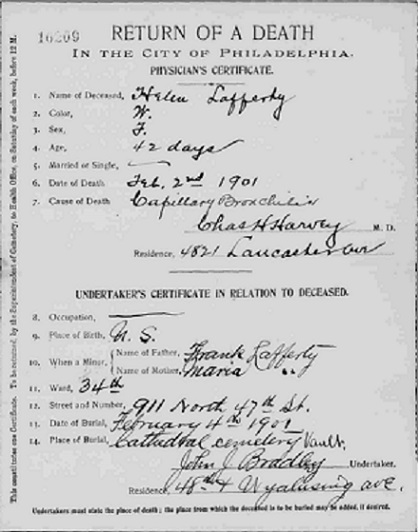 16209
RETURN OF A DEATH
IN THE CITY OF PHILADELPHIA.
PHYSICIAN'S CERTIFICATE.
1. Name of Deceased, Helen Lafferty
2. Color, W.
3. Sex, F.
4. Age, 42 days
5. Married or Single,
6. Date of Death Feb. 2nd 1901
7. Cause of Death Capillary Bronchitis
Chas H Harvey M. D.
Residence, 4821 Lancaster Ave
UNDERTAKER'S CERTIFICATE IN RELATION TO DECEASED.
8. Occupation,
9. Place of Birth, U. S.
10. When a Minor, Name of Father, Frank Lafferty
Name of Mother, Maria "
11. Ward, 34th
12. Street and Number, 911 North 47th St.
13. Date of Burial, February 4th 1901
14. Place of Burial, Cathedral cemetery Vault,
John J Bradley Undertaker.
Residence, 48th & Wyalusing ave.
Undertakers must state the place of death; the place from which the deceased is to be buried may be added, if desired.
This constitutes one Certificate. To be returned, by the Superintendent of Cemetery, to Health Office, on Saturday of each week, before 12 M.